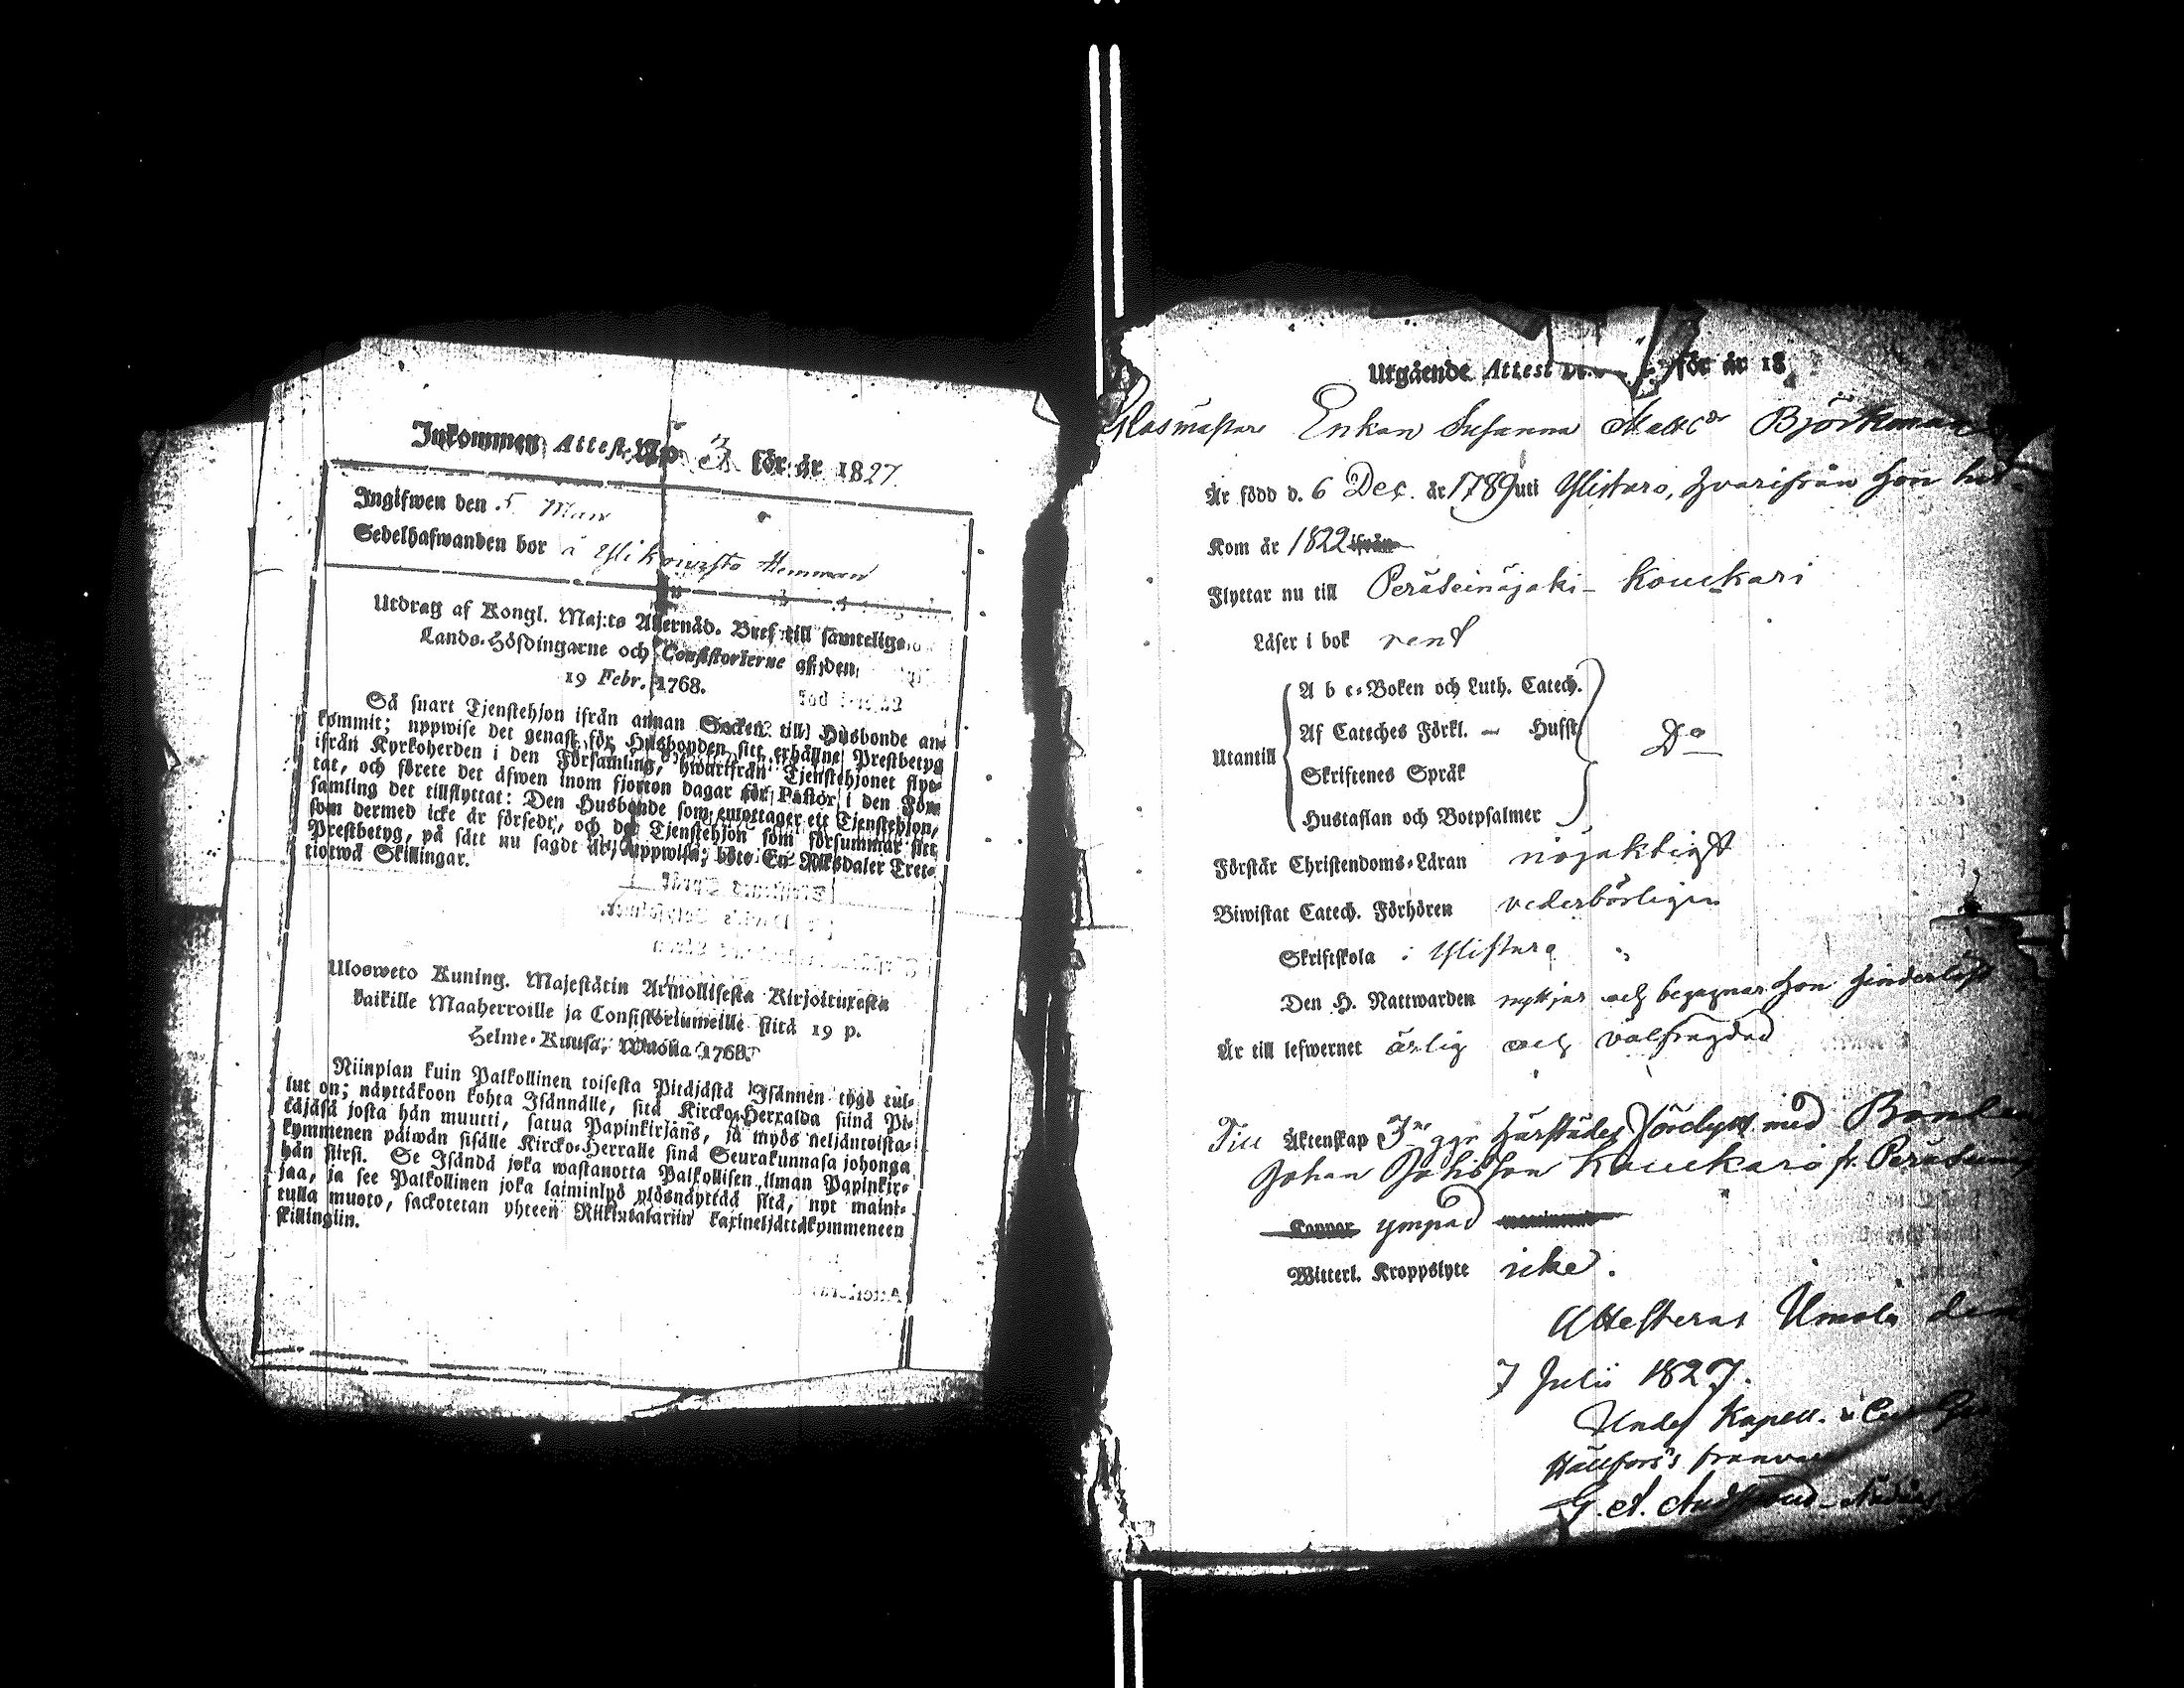 Inkommen Attest No 3 för år 1827.
Ingifwen den 5 Mars
Sedelhafwanden bor å Hemman
Utdrag af Kongl. Maj:ts Allernåd. Bref till samtelige
Lands-Höfdingarne och Consistorierne af den
19 Febr. 1768.
Så snart Tjenstehjon ifrån annan Socken till Husbonde an-
kommit; uppwise det genast för Husbonden sitt erhållne Prestbetyg
ifrån Kyrkoherden i den Församling, hwarifrån Tjenstehjonet flyt-
tat, och förete det äfwen inom fjorton dagar för Pastor i den För-
samling det tillflyttat: Den Husbonde som emottager ett Tjenstehjon,
som dermed icke är försedt, och det Tjenstehjon som försummar sitt
Prestbetyg, på sätt nu sagdt är, uppwisa; böte En Riksdaler Tret-
tiotwå Skillingar.
Ulosweto Kuning. Majestätin Armollisesta Kirjoituxesta
kaikille Maaherroille ja Consistoriumeille siitä 19 p.
Helme-Kuusa, Wuonna 1768.
Niinpian kuin Palkollinen toisesta Pitäjästä Isännen tygö tul-
lut on; näyttäkoon kohta Isännälle, sitä Kircko-Herralda siinä Pi-
täjäsä josta hän muutti, saatua Papinkirjäns, ja myös neljäntoista-
kymmenen päiwän sisälle Kircko-Herralle siinä Seurakunnasa johonga
hän siirsi. Se Isändä joka wastanotta Palkollisen ilman Papinkir-
jaa, ja see Palkollinen joka laiminlyö ylösnäyttää sitä, nyt maini-
tulla muoto, sackotetan yhteen Riikintalariin kaxineljättäkymmeneen
skillingiin.
Utgående Attest för år 18
Glasmästare Enkan Susanna Mattsdr Björkman
Är född d. 6 Dec. år 1789 uti Ylistaro, hvarifrån hon hit-
Kom år 1822 ifrån
Flyttar nu till Peräseinäjoki- Kouckari
Läser i bok rent
A b c-Boken och Luth. Catech.
Af Cateches Förkl. — Husst.
Utantill Do
Skriftenes Språk
Hustaflan och Botpsalmer
Förstår Christendoms-Läran nöjaktigt
Biwistat Catech. Förhören vederbörligen
Skriftskola i Ylistaro
Den H. Nattwarden nyttjar och begagnar hon hinderlöst
Är till lefwernet ärlig och välfrägdad
Till Äktenskap 3ne ggr härstädes förelyst med Bonden
Johan Kouckari fr.
Koppor ympad
Witterl. Kroppslyte icke.
Attesteras den
7 Julii 1827.
Under Kapell.
Hällfors's frånvaro
G. A.